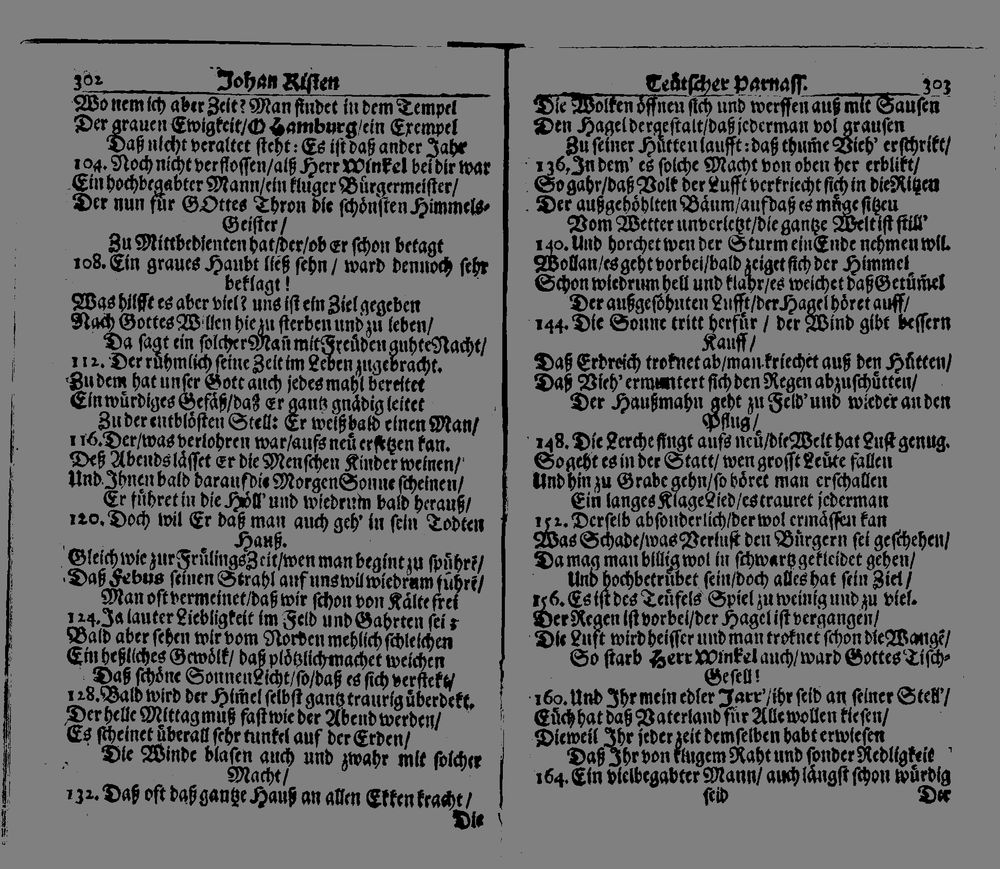 302 Johan Risten
Wo nem ich aber Zeit? Man findet in dem Tempel
Der grauen Ewigkeit/O Hamburg/ein Exempel
Daß nicht veraltet steht: Es ist daß ander Jahr
104. Noch nicht verflossen/alß Herr Winkel bei dir war
Ein hochbegabter Mann/ein kluger Bürgermeister/
Der nun für GOttes Thron die schönsten Himmels-
Geister/
Zu Mittbedienten hat/der/ob er schon betagt
108. Ein graues Haubt ließ sehn/ ward dennoch sehr
beklagt!
Was hilfft es aber viel? uns ist ein Ziel gegeben
Nach Gottes Willen hie zu sterben und zu leben/
Da sagt ein solcher Mañ mit Freüden guhte Nacht/
112. Der rühmlich seine Zeit im Leben zugebracht.
Zu dem hat unser Gott auch jedes mahl bereitet
Ein würdiges Gefäß/daß er gantz gnädig leitet
Zu der entblösten Stell: Er weiß bald einen Man/
116. Der/was verlohren war/aufs neü ersetzen kan.
Deß Abends lässet er die Menschen Kinder weinen/
Und Ihnen bald darauf die Morgen Sonne scheinen/
Er führet in die Höll' und wiedrum bald herauß/
120. Doch wil Er daß man auch geh' in sein Todten
Hauß.
Gleich wie zur FrülingsZeit/wen man begint zu spührẽ/
Daß Febus seinen Strahl auf uns wil wiedrum führẽ/
Man oft vermeinet/daß wir schon von Kälte frei
124. Ja lauter Liebligkeit im Feld und Gahrten sei:
Bald aber sehen wir vom Norden mehlich schleichen
Ein heßliches Gewölk/ daß plötzlich machet weichen
Daß schöne SonnenLicht/so/daß es sich verstekt/
128. Bald wird der Him̃el selbst gantz traurig überdekt.
Der helle Mittag muß fast wie der Abend werden/
Es scheinet überall sehr tunkel auf der Erden/
Die Winde blasen auch und zwahr mit solcher
Macht/
132. Daß oft daß gantze Hauß an allen Ekken kracht/
Die
Teütscher Parnass. 303
Die Wolken öffnen sich und werffen auß mit Sausen
Den Hagel dergestalt/daß jederman vol grausen
Zu seiner Hütten laufft: daß thum̃e Vieh' erschrikt/
136. In dem' es solche Macht von oben her erblikt/
So gahr/daß Volk der Lufft verkriecht sich in die Ritzen
Der außgehöhlten Bäum/auf daß es müge sitzen
Vom Wetter unverletzt/die gantze Welt ist still'
140. Und horchet wen der Sturm ein Ende nehmen wil.
Wollan/es geht vorbei/bald zeiget sich der Himmel
Schon wiedrum hell und klahr/es weichet daß Getüm̃el
Der außgesöhnten Lufft/der Hagel höret auff/
144. Die Sonne tritt herfür/ der Wind gibt bessern
Kauff/
Daß Erdreich troknet ab/man kriechet auß den Hütten/
Daß Vieh' ermuntert sich den Regen abzuschütten/
Der Haußmahn geht zu Feld' und wieder an den
Pflug/
148. Die Lerche singt aufs neü/die Welt hat Lust genug.
So geht es in der Statt/ wen grosse Leüte fallen
Und hin zu Grabe gehn/so höret man erschallen
Ein langes KlageLied/es trauret jederman
152. Derselb absonderlich/der wol ermässen kan
Was Schade/was Verlust den Bürgern sei geschehen/
Da mag man billig wol in schwartz gekleidet gehen/
Und hochbetrübet sein/doch alles hat sein Ziel/
156. Es ist des Teüfels Spiel zu weinig und zu viel.
Der Regen ist vorbei/der Hagel ist vergangen/
Die Luft wird heisser und man troknet schon die Wangẽ/
So starb Herr Winkel auch/ward Gottes Tisch-
Gesell!
160. Und Ihr mein edler Jarr'/ihr seid an seiner Stell'/
Eüch hat daß Vaterland für Alle wollen kiesen/
Dieweil Ihr jeder zeit demselben habt erwiesen
Daß Ihr von klugem Raht und sonder Redligkeit
164. Ein vielbegabter Mann/ auch längst schon würdig
seid Der